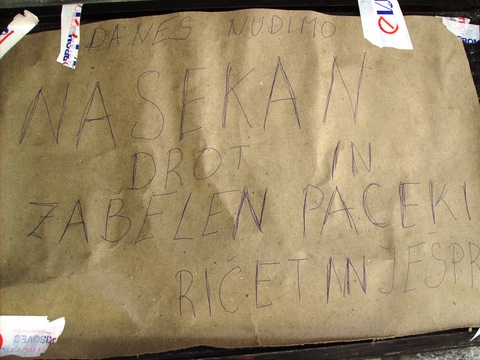 DANES NUDIMO
NASEKAN
DROT IN
ZABELEN PACEKI
RIČET IN JEŠPR